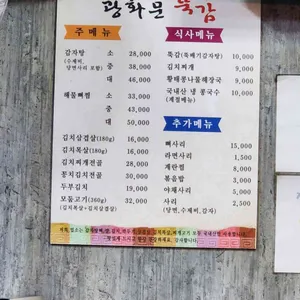 광화문 뚝감
주메뉴
감자탕 소 28,000
(수제비, 중 38,000
당면사리 포함) 대 46,000
해물뼈찜 소 33,000
중 43,000
대 50,000
김치삼겹살(180g) 16,000
김치목살(180g) 16,000
김치찌개전골 28,000
꽁치김치전골 30,000
두부김치 19,000
모둠고기(360g) 32,000
(김치목살+김치삼겹살)
식사메뉴
뚝감(뚝배기감자탕) 10,000
김치찌개 9,000
황태콩나물해장국 9,000
국내산 냉 콩국수 10,000
(계절메뉴)
추가메뉴
뼈사리 15,000
라면사리 1,500
계란찜 8,000
볶음밥 3,000
야채사리 5,000
사리 2,500
(당면,수제비,감자)